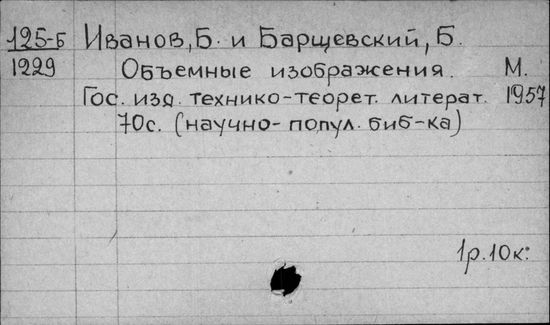 125-Б Иванов, Б. и Барщевский, Б.
1229 Объемные изображения. М.
Гос. изд. технико-теорет. литерат. 1957
70с. (научно-попул. биб-ка)
1р.10к: